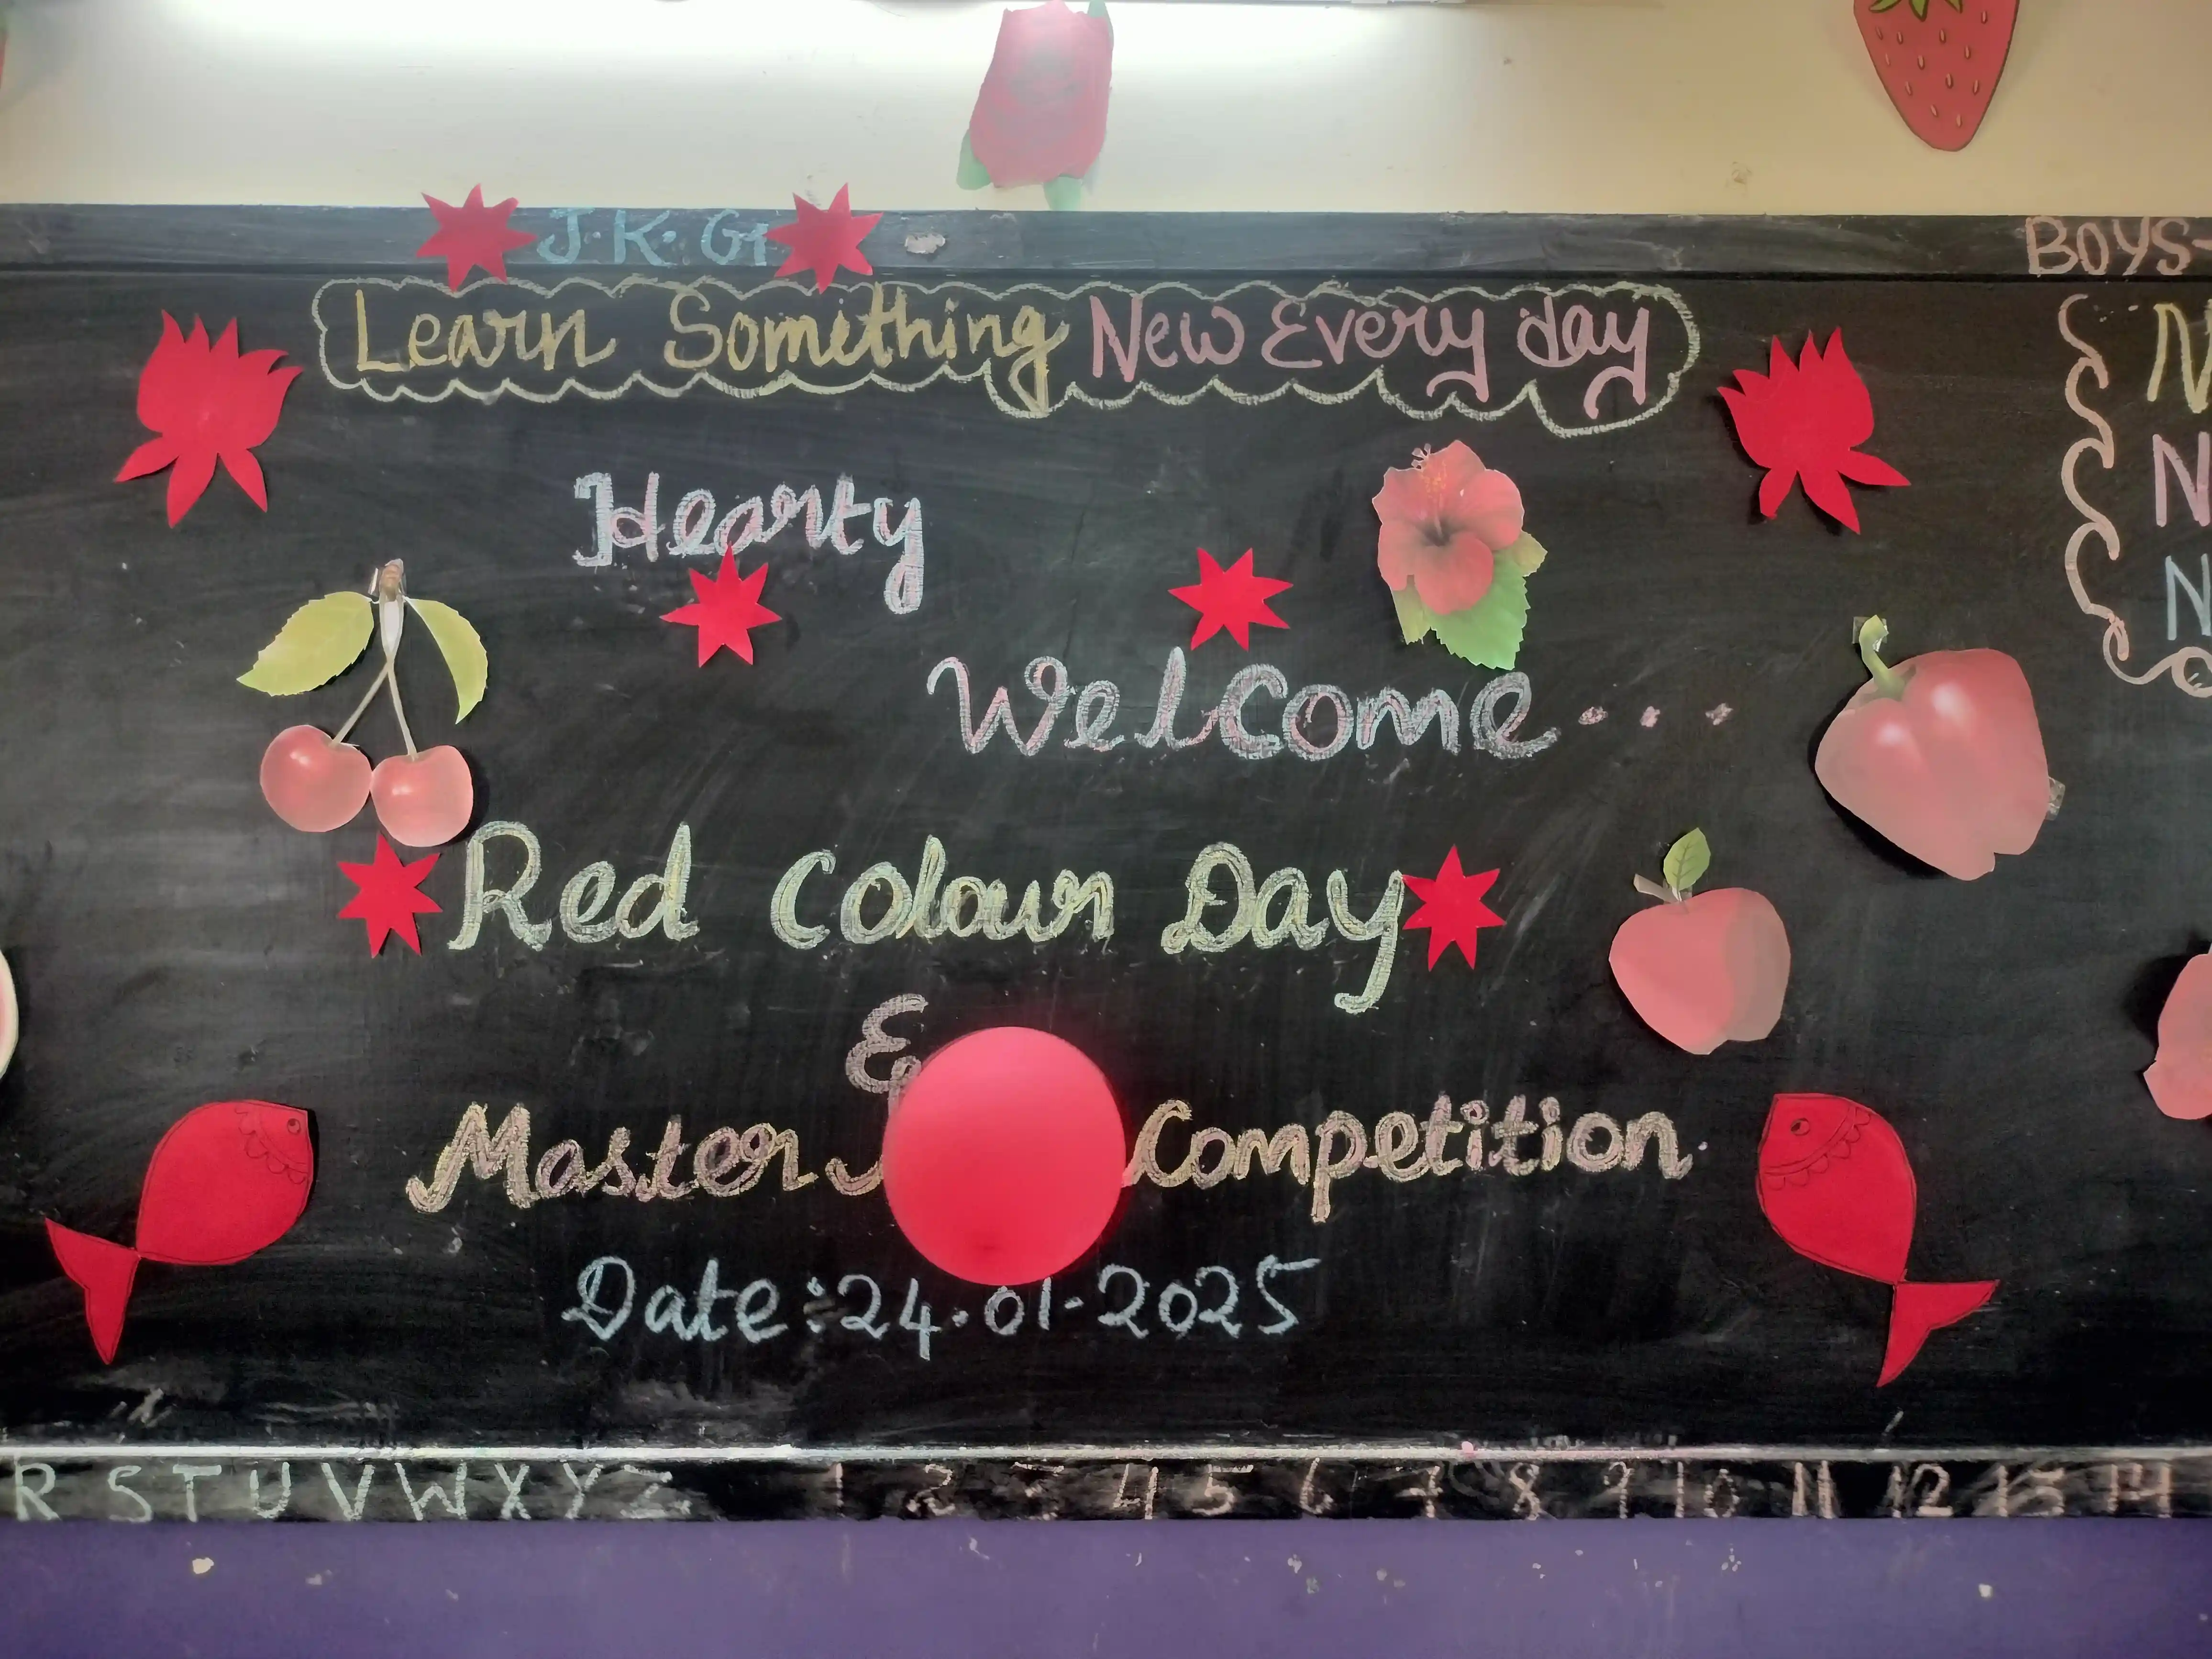 J.K.G
BOYS-
Learn Something New Every day
N
N
N
Hearty
Welcome...
Red Colour Day
&
Master Competition.
Date:24.01.2025
R S T U V W X Y Z 1 2 3 4 5 6 7 8 9 10 11 12 13 14